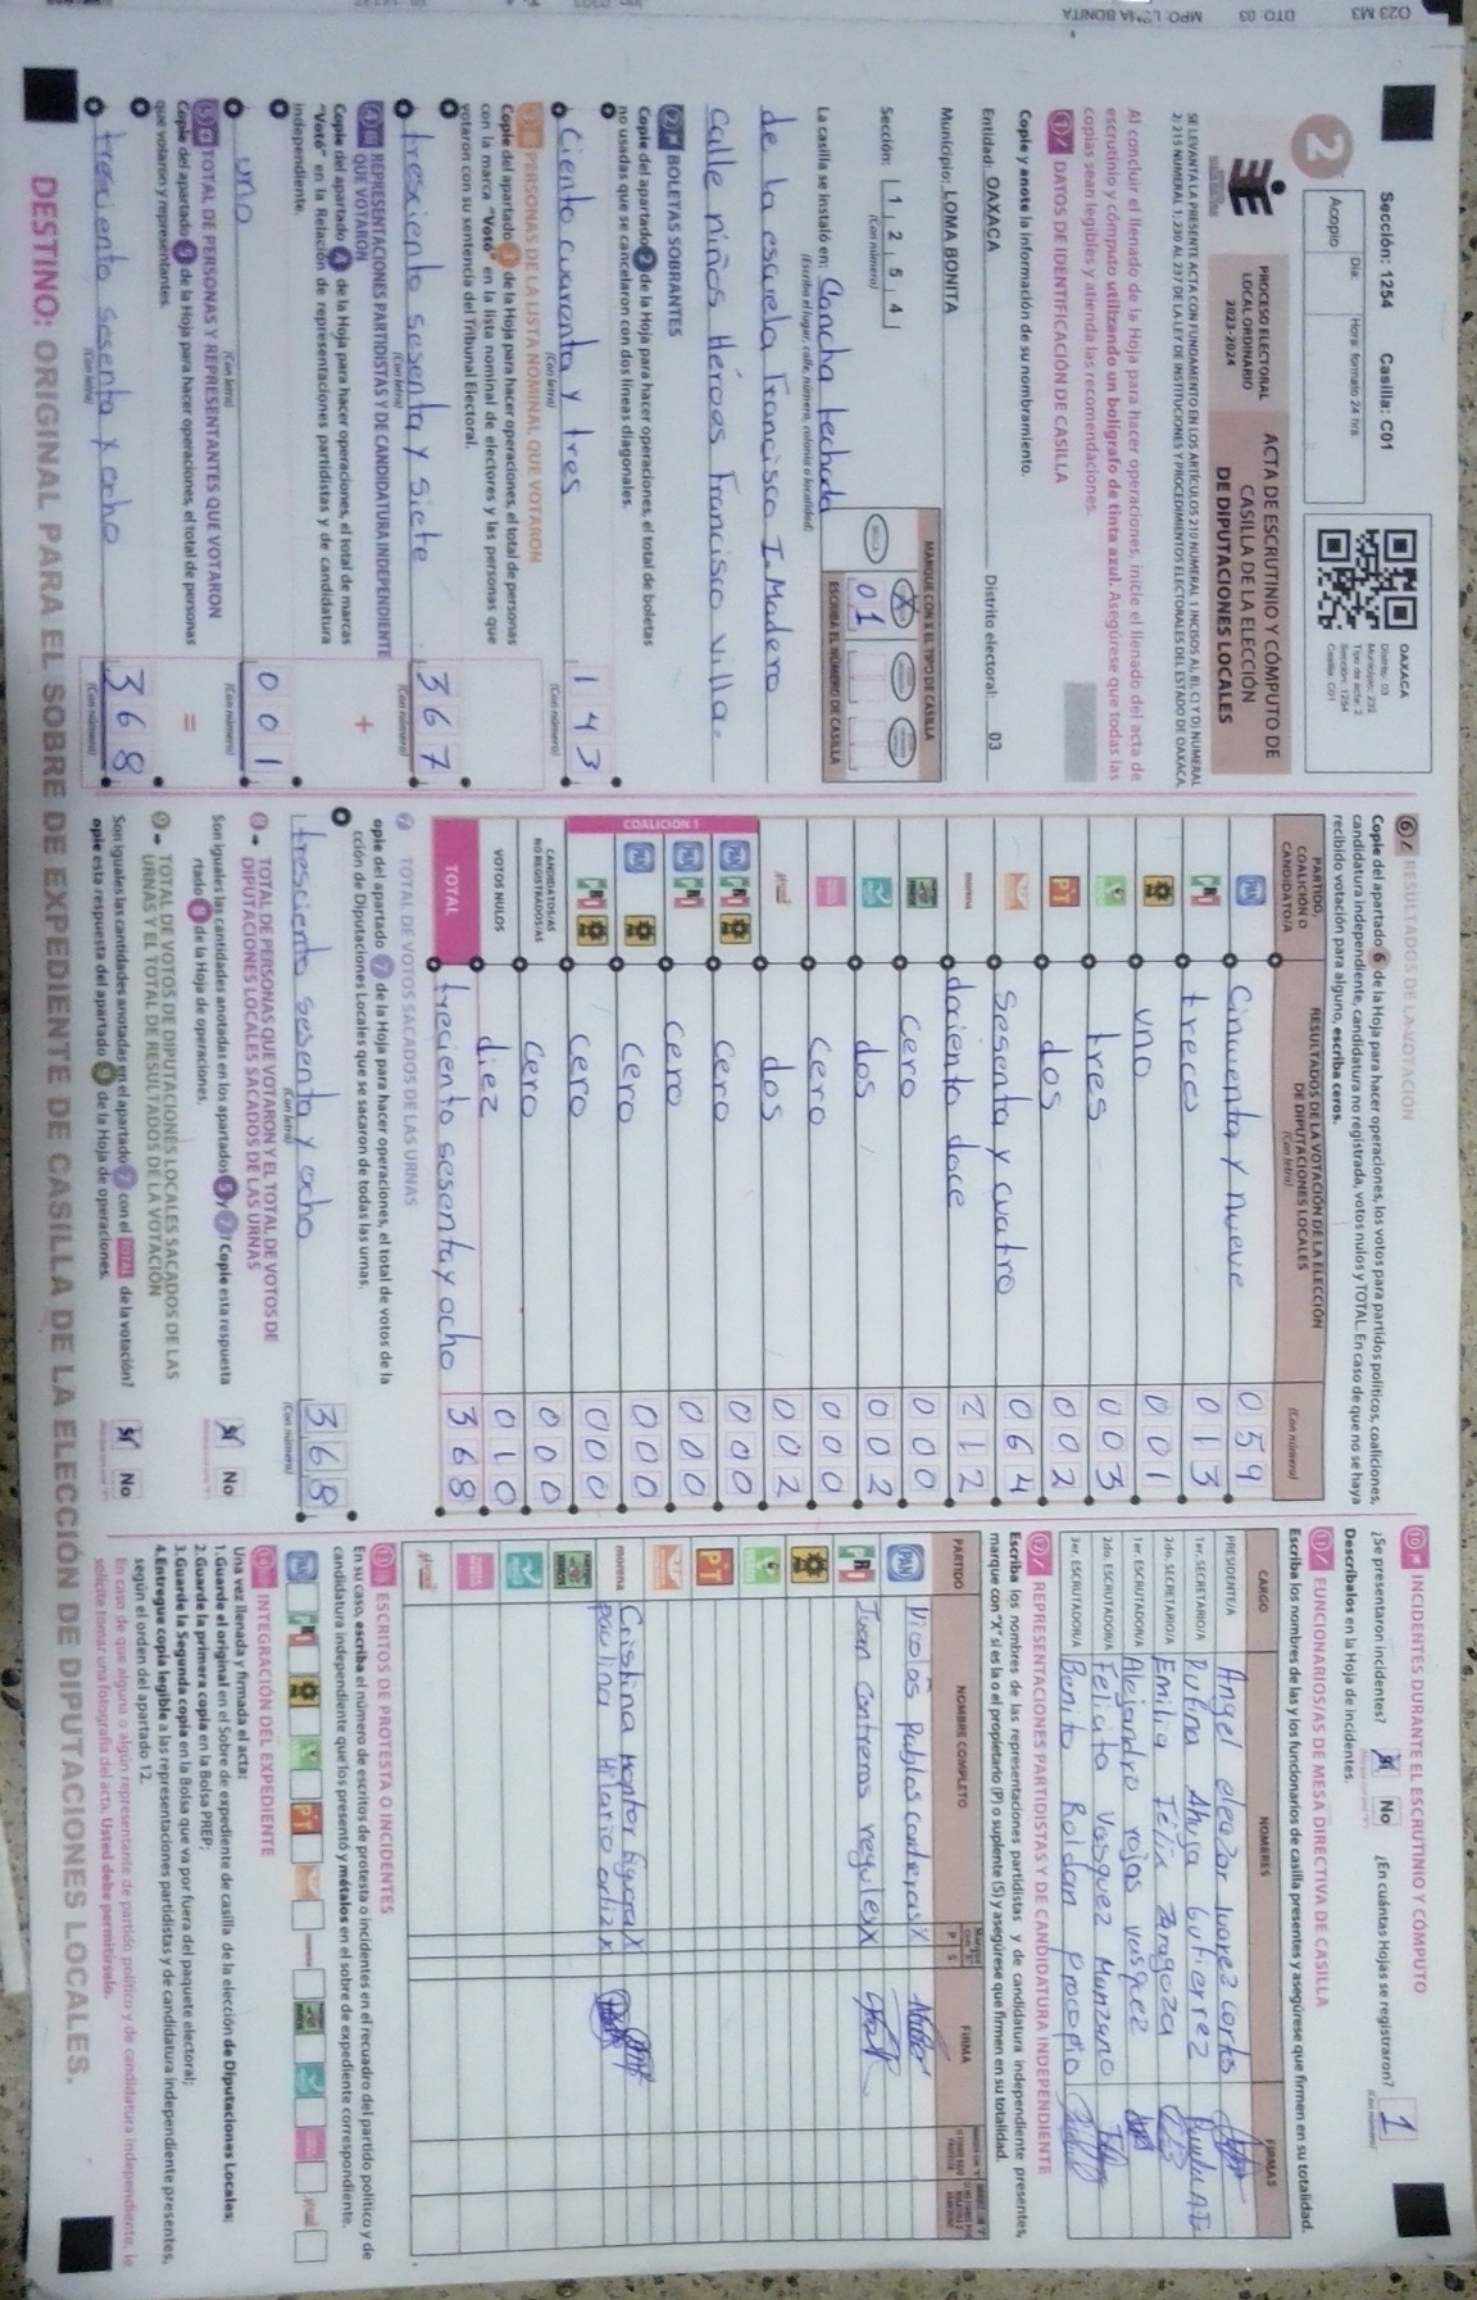 Sección: 1254 Casilla: C01
2
Acopio
Día:
Hora: formato 24 hrs
OAXACA
Distrito: 03
Municipio: 232
Tipo de acta: 2
Sección: 1254
Casilla: C01
PROCESO ELECTORAL
LOCAL ORDINARIO
2023-2024
ACTA DE ESCRUTINIO Y CÓMPUTO DE
CASILLA DE LA ELECCIÓN
DE DIPUTACIONES LOCALES
SE LEVANTA LA PRESENTE ACTA CON FUNDAMENTO EN LOS ARTÍCULOS 210 NUMERAL 1 INCISOS A), B), C) Y D) NUMERAL
2; 215 NUMERAL 1; 230 AL 237 DE LA LEY DE INSTITUCIONES Y PROCEDIMIENTOS ELECTORALES DEL ESTADO DE OAXACA.
Al concluir el llenado de la Hoja para hacer operaciones, inicie el llenado del acta de
escrutinio y cómputo utilizando un bolígrafo de tinta azul. Asegúrese que todas las
copias sean legibles y atienda las recomendaciones.
1 DATOS DE IDENTIFICACIÓN DE CASILLA
Copie y anote la información de su nombramiento.
Entidad: OAXACA Distrito electoral: 03
Municipio: LOMA BONITA
Sección: 1 2 5 4
(Con número)
MARQUE CON X EL TIPO DE CASILLA
ESCRIBA EL NÚMERO DE CASILLA
01
La casilla se instaló en: Cancha techada
(Escriba el lugar, calle, número, colonia o localidad)
de la escuela Francisco I. Madero
Calle niños Héroes Francisco villa.
2 BOLETAS SOBRANTES
Copie del apartado 2 de la Hoja para hacer operaciones, el total de boletas
no usadas que se cancelaron con dos líneas diagonales.
Ciento cuarenta y tres 143
(Con letra) (Con número)
3 PERSONAS DE LA LISTA NOMINAL QUE VOTARON
Copie del apartado 3 de la Hoja para hacer operaciones, el total de personas
con la marca "Votó" en la lista nominal de electores y las personas que
votaron con su sentencia del Tribunal Electoral.
tresciento sesenta y siete 367
(Con letra) (Con número)
4 REPRESENTACIONES PARTIDISTAS Y DE CANDIDATURA INDEPENDIENTE
QUE VOTARON
Copie del apartado 4 de la Hoja para hacer operaciones, el total de marcas
"Votó" en la Relación de representaciones partidistas y de candidatura
independiente.
+
uno 001
(Con letra) (Con número)
5 TOTAL DE PERSONAS Y REPRESENTANTES QUE VOTARON
Copie del apartado 5 de la Hoja para hacer operaciones, el total de personas
que votaron y representantes.
=
tresciento sesenta y ocho 368
(Con letra) (Con número)
6 RESULTADOS DE LA VOTACIÓN
Copie del apartado 6 de la Hoja para hacer operaciones, los votos para partidos políticos, coaliciones,
candidatura independiente, candidatura no registrada, votos nulos y TOTAL. En caso de que no se haya
recibido votación para alguno, escriba ceros.
PARTIDO,
COALICIÓN O
CANDIDATO/A
RESULTADOS DE LA VOTACIÓN DE LA ELECCIÓN
DE DIPUTACIONES LOCALES
(Con letra)
(Con número)
PAN Cincuenta y nueve 059
PRI trece 013
PRD uno 001
tres 003
PT dos 002
Sesenta y cuatro 064
morena dociento doce 212
cero 000
dos 002
cero 000
dos 002
COALICIÓN 1
PAN PRI PRD cero 000
PAN PRI cero 000
PAN PRD cero 000
PRI PRD cero 000
CANDIDATOS/AS
NO REGISTRADOS/AS cero 000
VOTOS NULOS diez 010
TOTAL treciento sesenta y ocho 368
7 TOTAL DE VOTOS SACADOS DE LAS URNAS
opie del apartado 7 de la Hoja para hacer operaciones, el total de votos de la
cción de Diputaciones Locales que se sacaron de todas las urnas.
tresciento sesenta y ocho 368
(Con letra) (Con número)
8 TOTAL DE PERSONAS QUE VOTARON Y EL TOTAL DE VOTOS DE
DIPUTACIONES LOCALES SACADOS DE LAS URNAS
Son iguales las cantidades anotadas en los apartados 5 y 7? Copie esta respuesta
rtado 8 de la Hoja de operaciones.
Sí No
9 TOTAL DE VOTOS DE DIPUTACIONES LOCALES SACADOS DE LAS
URNAS Y EL TOTAL DE RESULTADOS DE LA VOTACIÓN
Son iguales las cantidades anotadas en el apartado 7 con el TOTAL de la votación?
opie esta respuesta del apartado 9 de la Hoja de operaciones.
Sí No
10 INCIDENTES DURANTE EL ESCRUTINIO Y CÓMPUTO
¿Se presentaron incidentes? Sí No ¿En cuántas Hojas se registraron? 1
Descríbalos en la Hoja de incidentes.
11 FUNCIONARIOS/AS DE MESA DIRECTIVA DE CASILLA
Escriba los nombres de las y los funcionarios de casilla presentes y asegúrese que firmen en su totalidad.
CARGO NOMBRES FIRMAS
PRESIDENTE/A Angel eleazar juarez cortes
1er. SECRETARIO/A Rufina Ahuja Gutierrez
2do. SECRETARIO/A Emilia Félix Zaragoza
1er. ESCRUTADOR/A Alejandro rojas vasquez
2do. ESCRUTADOR/A Felicita Vasquez Manzano
3er. ESCRUTADOR/A Benito Roldan Procopio
12 REPRESENTACIONES PARTIDISTAS Y DE CANDIDATURA INDEPENDIENTE
Escriba los nombres de las representaciones partidistas y de candidatura independiente presentes,
marque con "X" si es la o el propietario (P) o suplente (S) y asegúrese que firmen en su totalidad.
PARTIDO NOMBRE COMPLETO P S FIRMA
PAN Nicolás Pablos contreras X
PRI Juan contreras regules X
PRD
PT
morena Cristina Montor figueroa X
paulina Hilario ortiz X
13 ESCRITOS DE PROTESTA O INCIDENTES
En su caso, escriba el número de escritos de protesta o incidentes en el recuadro del partido político y de
candidatura independiente que los presentó y métalos en el sobre de expediente correspondiente.
PAN PRI PRD PT morena
14 INTEGRACIÓN DEL EXPEDIENTE
Una vez llenada y firmada el acta:
1. Guarde el original en el Sobre de expediente de casilla de la elección de Diputaciones Locales;
2. Guarde la primera copia en la Bolsa PREP;
3. Guarde la Segunda copia en la Bolsa que va por fuera del paquete electoral;
4. Entregue copia legible a las representaciones partidistas y de candidatura independiente presentes,
según el orden del apartado 12.
En caso de que alguna o algún representante de partido político y de candidatura independiente, le
solicite tomar una fotografía del acta, Usted debe permitírselo.
DESTINO: ORIGINAL PARA EL SOBRE DE EXPEDIENTE DE CASILLA DE LA ELECCIÓN DE DIPUTACIONES LOCALES.
023 M3 DTO. 03 MPO. LOMA BONITA